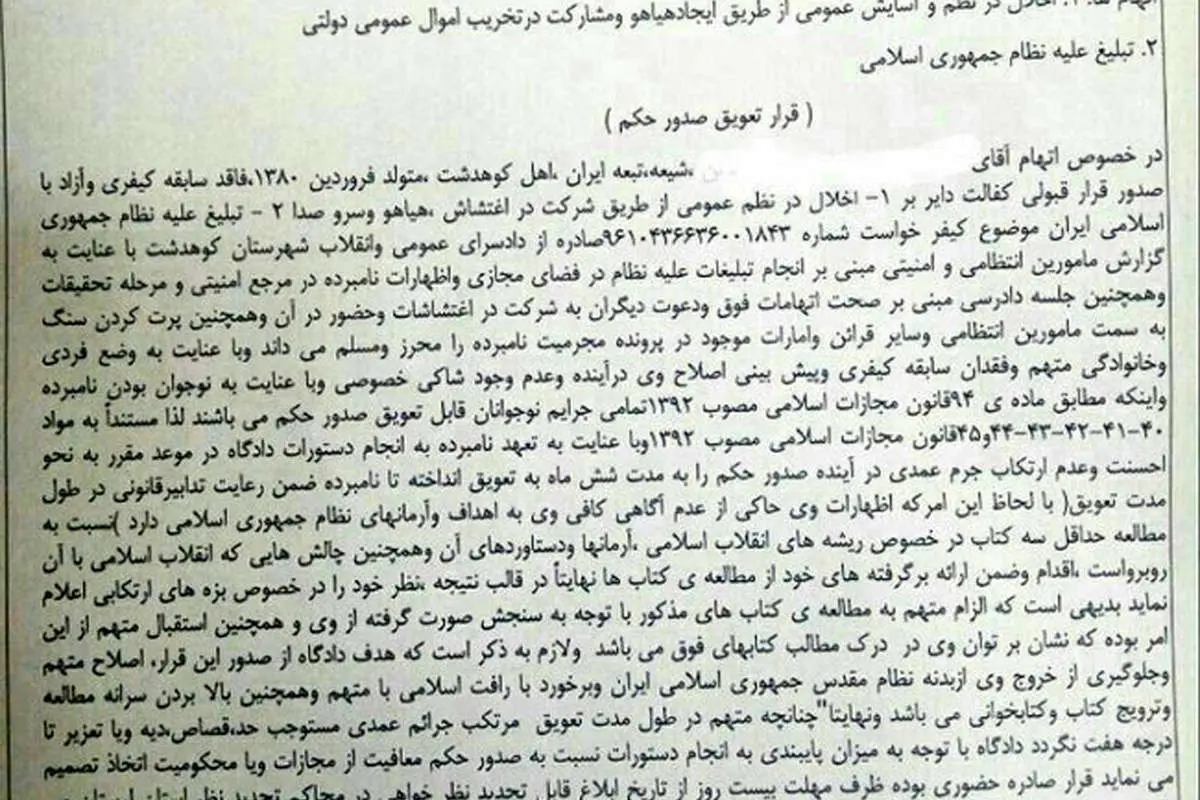 اتهام ها: ۱. اخلال در نظم و آسایش عمومی از طریق ایجادهیاهو ومشارکت درتخریب اموال عمومی دولتی
۲. تبلیغ علیه نظام جمهوری اسلامی
( قرار تعویق صدور حکم )
در خصوص اتهام آقای ،شیعه،تبعه ایران ،اهل کوهدشت ،متولد فروردین ۱۳۸۰،فاقد سابقه کیفری وآزاد با
صدور قرار قبولی کفالت دایر بر ۱- اخلال در نظم عمومی از طریق شرکت در اغتشاش ،هیاهو وسرو صدا ۲ - تبلیغ علیه نظام جمهوری
اسلامی ایران موضوع کیفر خواست شماره ۹۶۱۰۴۳۶۶۳۶۰۰۱۸۴۳صادره از دادسرای عمومی وانقلاب شهرستان کوهدشت با عنایت به
گزارش مامورین انتظامی و امنیتی مبنی بر انجام تبلیغات علیه نظام در فضای مجازی واظهارات نامبرده در مرجع امنیتی و مرحله تحقیقات
وهمچنین جلسه دادرسی مبنی بر صحت اتهامات فوق ودعوت دیگران به شرکت در اغتشاشات وحضور در آن وهمچنین پرت کردن سنگ
به سمت مامورین انتظامی وسایر قرائن وامارات موجود در پرونده مجرمیت نامبرده را محرز ومسلم می داند وبا عنایت به وضع فردی
وخانوادگی متهم وفقدان سابقه کیفری وپیش بینی اصلاح وی درآینده وعدم وجود شاکی خصوصی وبا عنایت به نوجوان بودن نامبرده
واینکه مطابق ماده ی ۹۴قانون مجازات اسلامی مصوب ۱۳۹۲تمامی جرایم نوجوانان قابل تعویق صدور حکم می باشند لذا مستنداً به مواد
۴۰-۴۱-۴۲-۴۳-۴۴و۴۵قانون مجازات اسلامی مصوب ۱۳۹۲وبا عنایت به تعهد نامبرده به انجام دستورات دادگاه در موعد مقرر به نحو
احسنت وعدم ارتکاب جرم عمدی در آینده صدور حکم را به مدت شش ماه به تعویق انداخته تا نامبرده ضمن رعایت تدابیرقانونی در طول
مدت تعویق( با لحاظ این امرکه اظهارات وی حاکی از عدم آگاهی کافی وی به اهداف وآرمانهای نظام جمهوری اسلامی دارد )نسبت به
مطالعه حداقل سه کتاب در خصوص ریشه های انقلاب اسلامی ،آرمانها ودستاوردهای آن وهمچنین چالش هایی که انقلاب اسلامی با آن
روبرواست ،اقدام وضمن ارائه برگرفته های خود از مطالعه ی کتاب ها نهایتاً در قالب نتیجه ،نظر خود را در خصوص بزه های ارتکابی اعلام
نماید بدیهی است که الزام متهم به مطالعه ی کتاب های مذکور با توجه به سنجش صورت گرفته از وی و همچنین استقبال متهم از این
امر بوده که نشان بر توان وی در درک مطالب کتابهای فوق می باشد ولازم به ذکر است که هدف دادگاه از صدور این قرار، اصلاح متهم
وجلوگیری از خروج وی ازبدنه نظام مقدس جمهوری اسلامی ایران وبرخورد با رافت اسلامی با متهم وهمچنین بالا بردن سرانه مطالعه
وترویج کتاب وکتابخوانی می باشد ونهایتا"چنانچه متهم در طول مدت تعویق مرتکب جرائم عمدی مستوجب حد،قصاص،دیه ویا تعزیر تا
درجه هفت نگردد دادگاه با توجه به میزان پایبندی به انجام دستورات نسبت به صدور حکم معافیت از مجازات ویا محکومیت اتخاذ تصمیم
می نماید قرار صادره حضوری بوده ظرف مهلت بیست روز از تاریخ ابلاغ قابل تجدید نظر خواهی در محاکم تجدید نظر استان